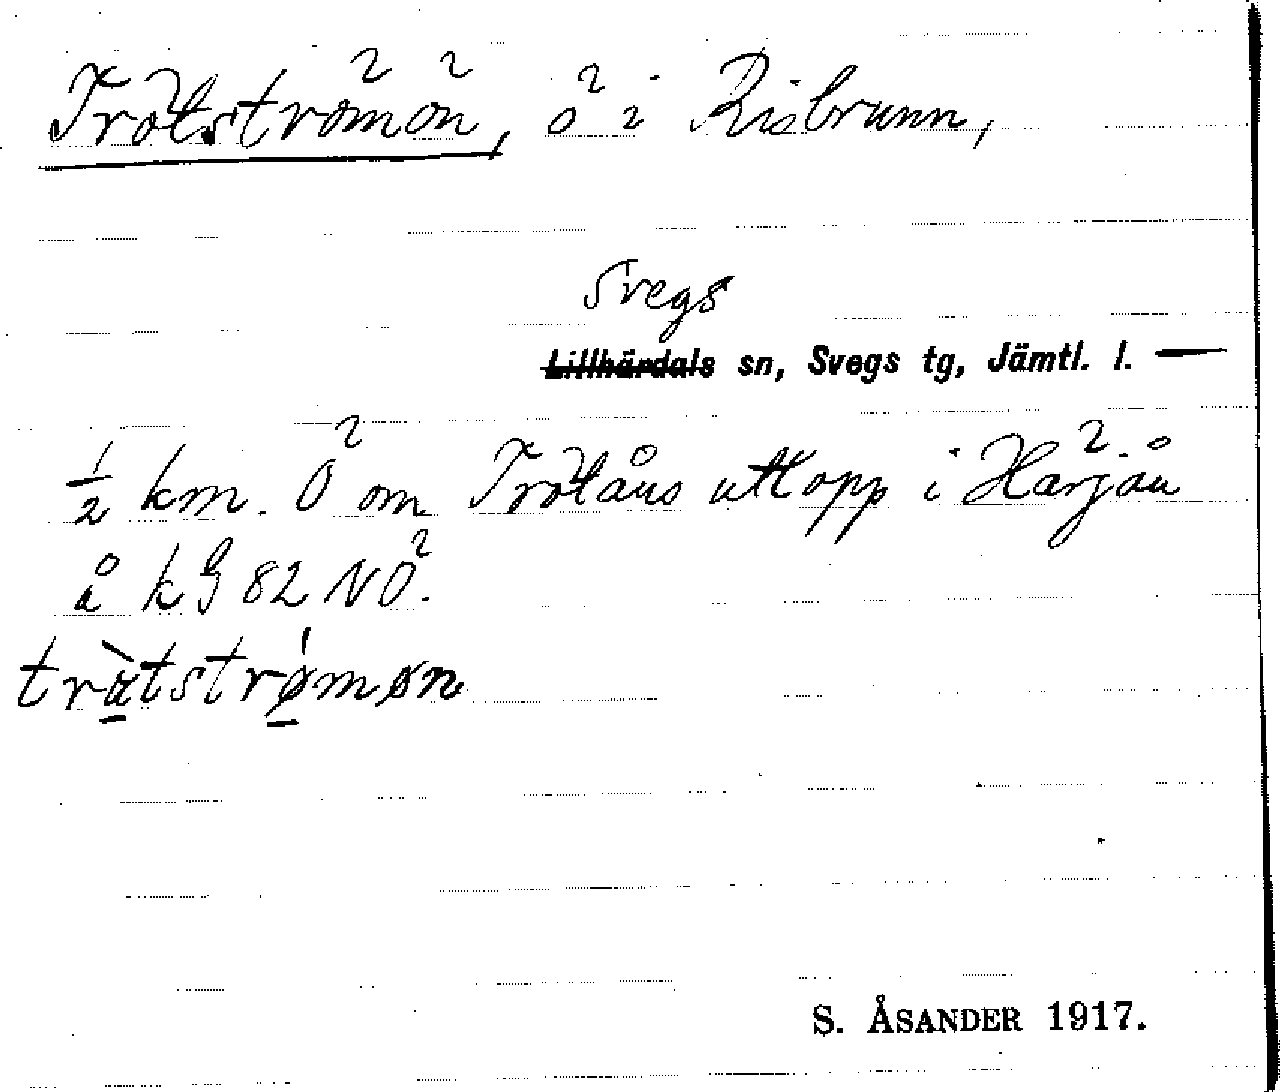 Trotströmön, ö i Risbrunn,
Svegs
Lillhärdals sn, Svegs tg, Jämtl. l. —
½ km. Ö om Trotåns utlopp i Härjån
å kG 82 NÖ.
tràtstrǿmøn
S. ÅSANDER 1917.